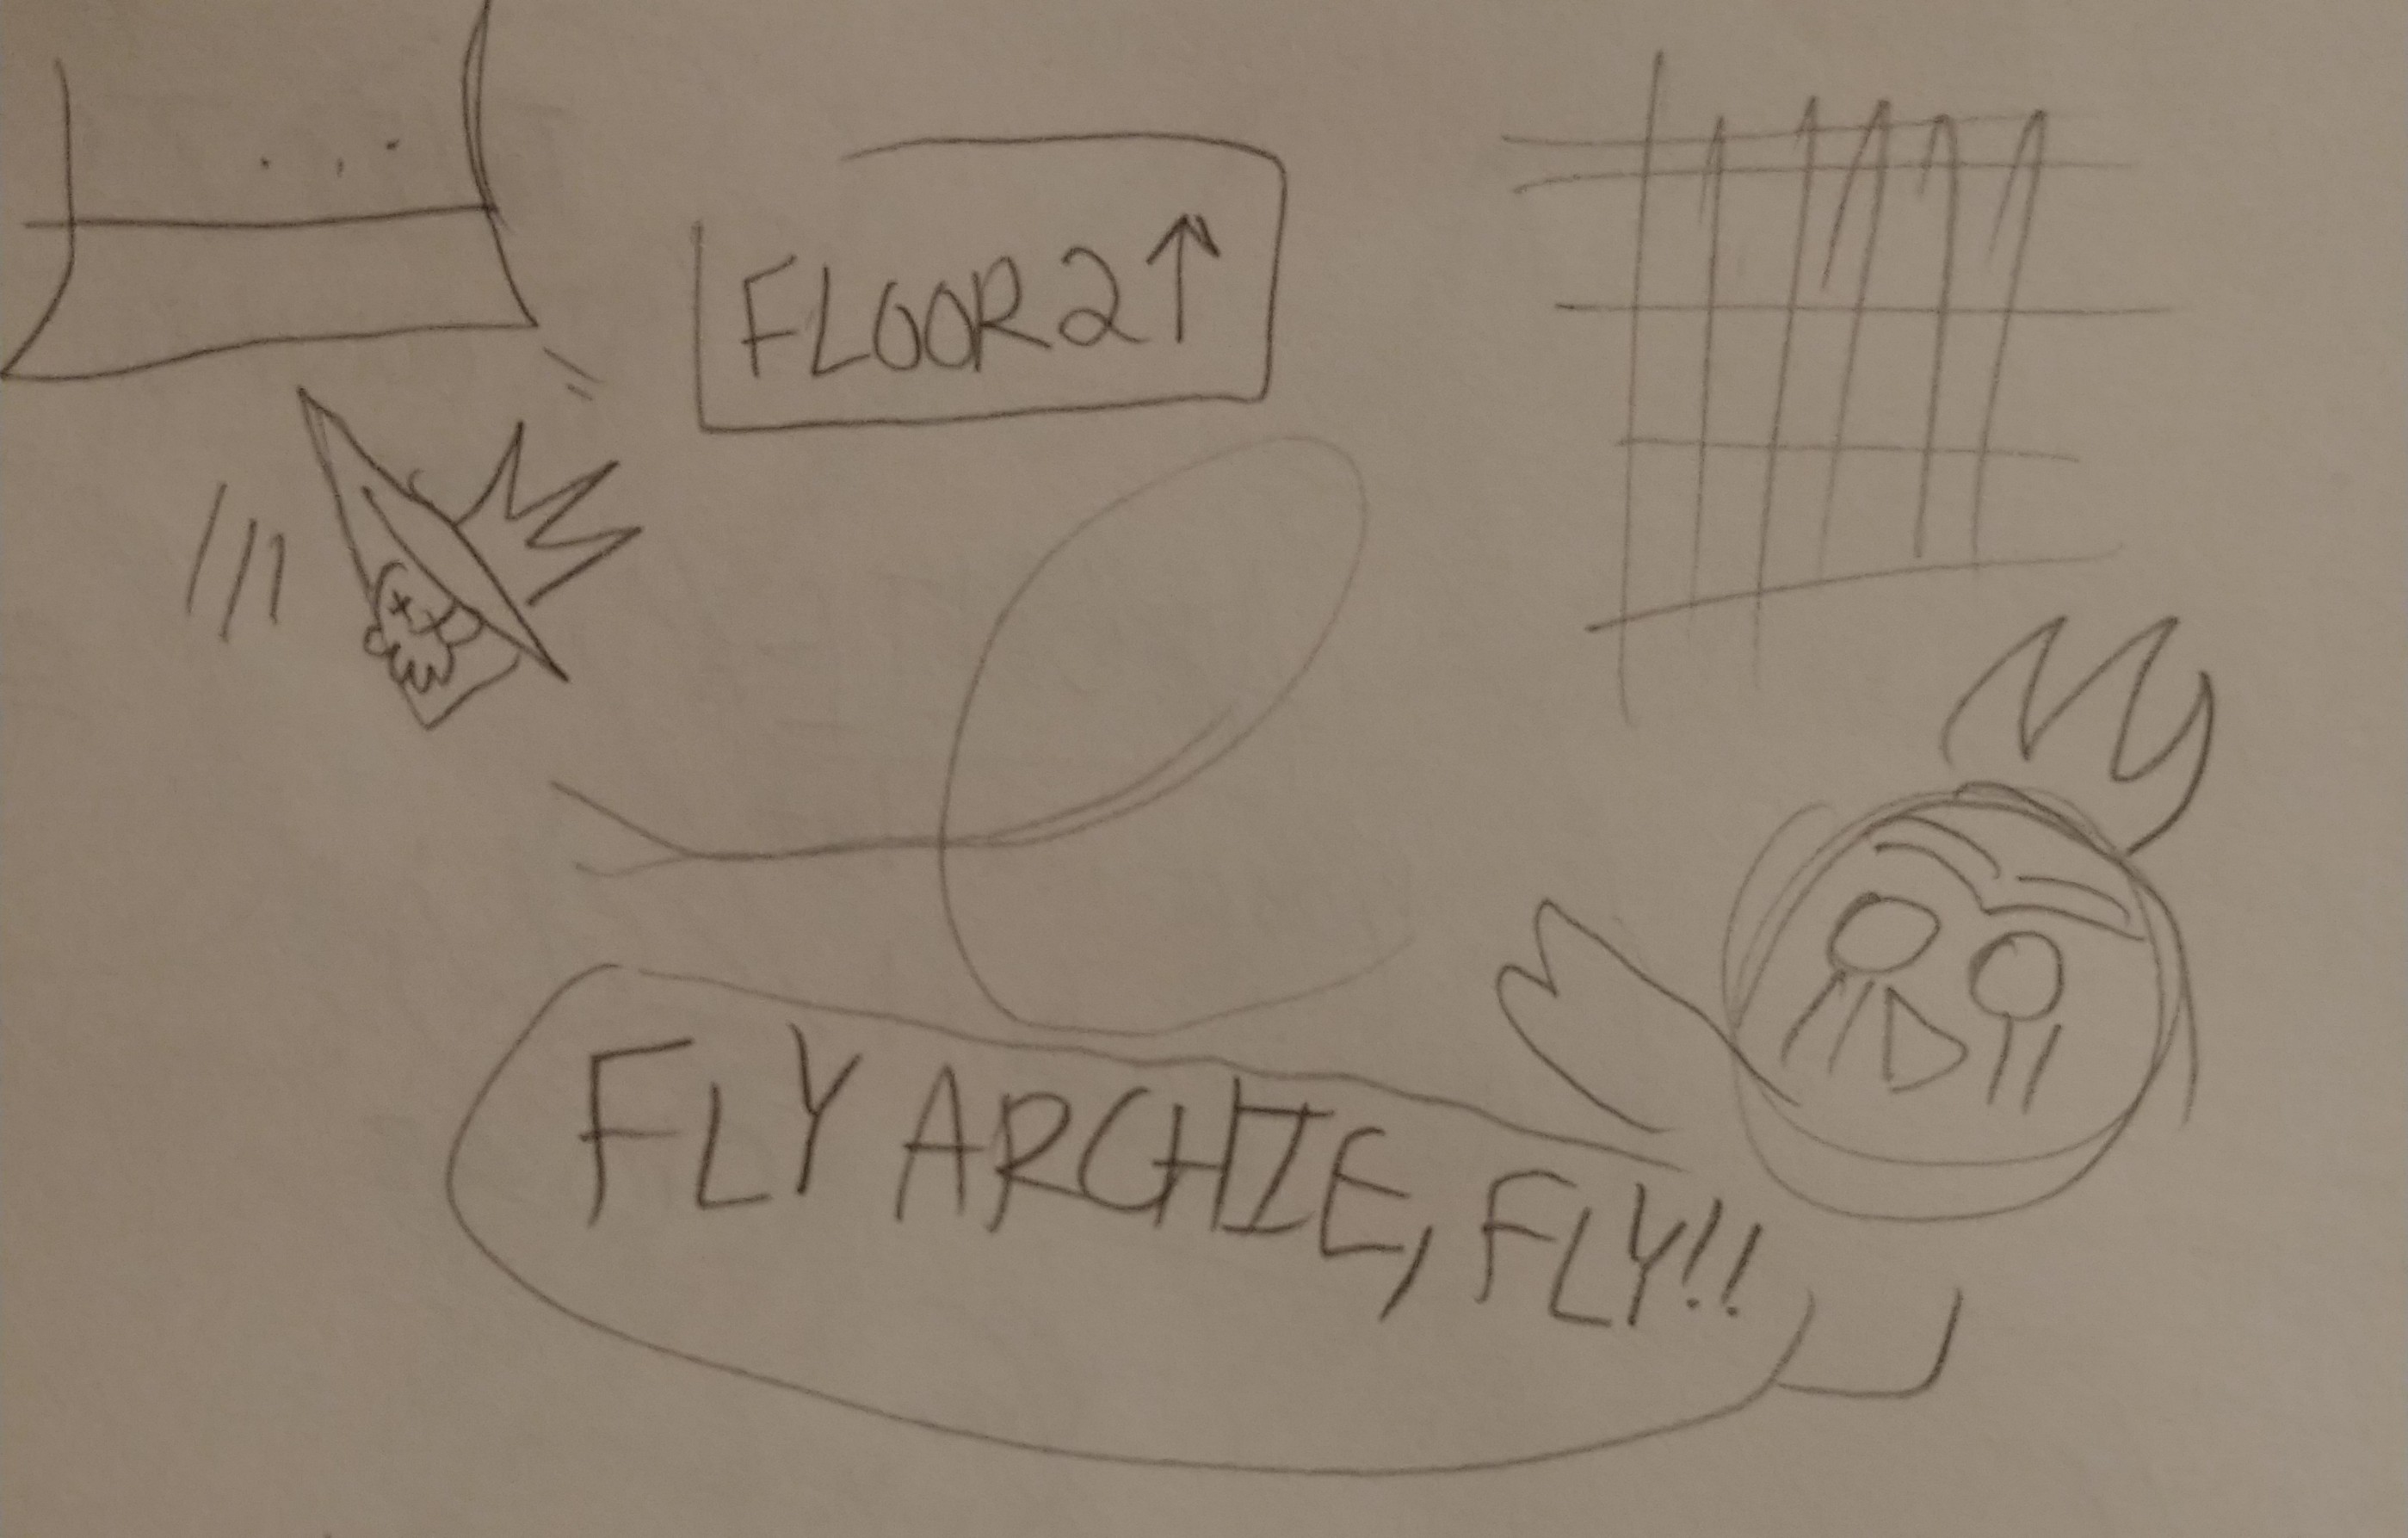 FLOOR 2↑
FLY ARCHIE, FLY!!